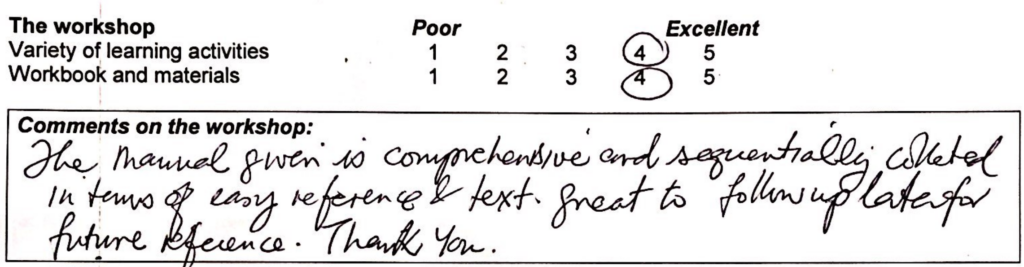 The workshop Poor Excellent
Variety of learning activities 1 2 3 4 5
Workbook and materials 1 2 3 4 5
Comments on the workshop:
The manual given is comprehensive and sequentially collated
in terms of easy reference & text. Great to follow up later for
future reference. Thank You.